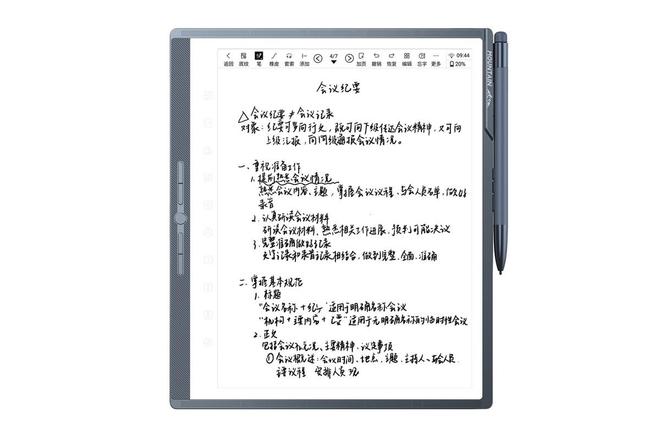 返回 底纹 笔 橡皮 套索 添加 4/7 加页 撤销 恢复 编辑 忘字 更多 09:44 20%
MOUNTAIN
会议纪要
△会议纪要≠会议记录
对象：纪要可多向行文，既可向下级传达会议精神，又可向
上级汇报，向同级通报会议情况。
一、重视准备工作
1.提前熟悉会议情况
熟悉会议内容、主题，掌握会议议程、与会人员名单，做好
录音
2.认真研读会议材料
研读会议材料、熟悉相关工作进展，预判可能决议
3.完整准确做好记录
文字记录和录音记录相结合，做到完整、全面、准确
二、掌握基本规范
1.标题
"会议名称+纪要"适用于明确名称会议
"机构+内容+纪要"适用于无明确名称的临时性会议
2.正文
包括会议概况、主要精神、议定事项
①会议概述：会议时间、地点、主题、主持人、与会人员
议程